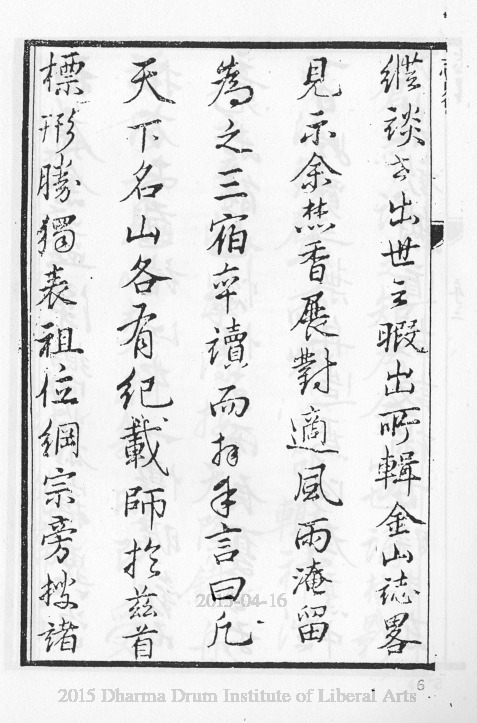 縱談出世之暇出所輯金山誌畧
見示余焚香展對適風雨淹留
為之三宿卒讀而拜手言曰凡
天下名山各有紀載師於茲首
標形勝獨表祖位綱宗旁搜諸
2015-04-16
6
2015 Dharma Drum Institute of Liberal Arts